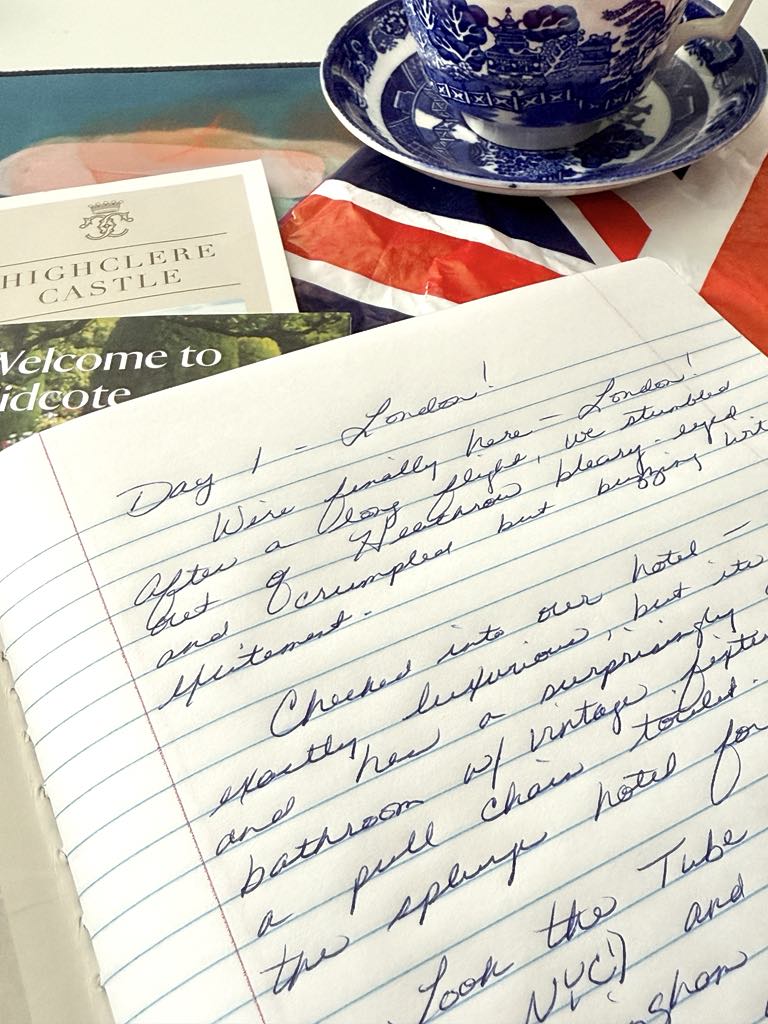 HIGHCLERE
CASTLE
Welcome to
idcote
Day 1 - London!
We're finally here - London!
After a long flight, we stumbled
out of Heathrow bleary-eyed
and crumpled but buzzing wit
excitement.
Checked into our hotel -
exactly luxurious, but its
and has a surprisingly
bathroom w/ vintage fixtu
a pull chain toilet.
the splurge hotel for
Took the Tube
NYC!) and
ingham